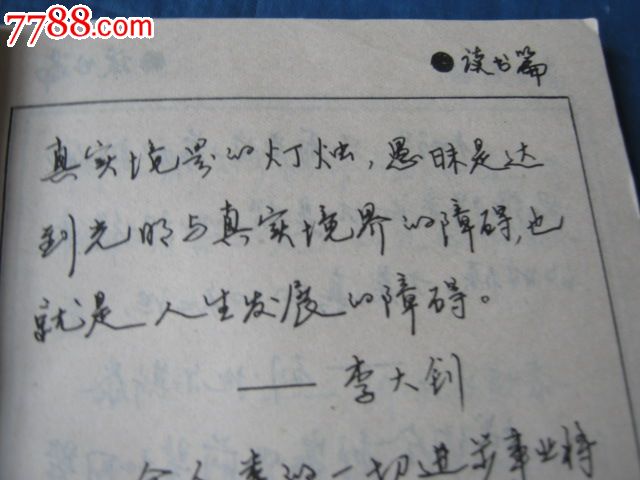 7788.com
●读书篇
真实境界的灯烛,愚昧是达
到光明与真实境界的障碍,也
就是人生发展的障碍。
——李大钊
的一切进步事业将